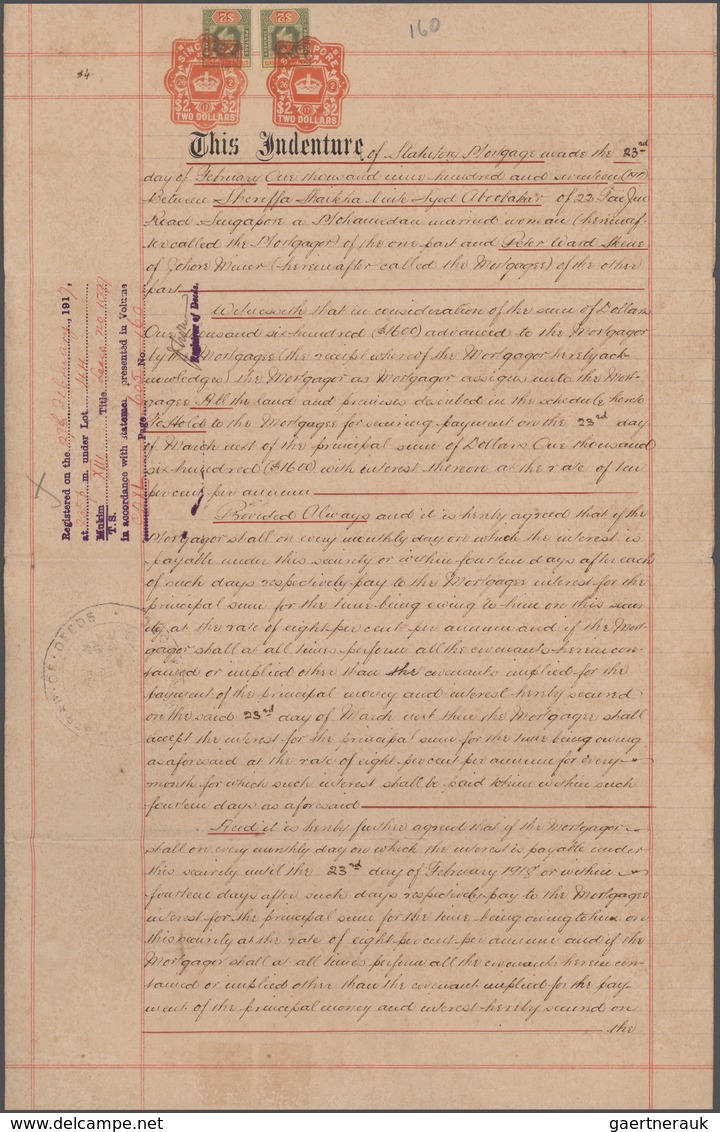 160
$2
$2
34.
SINGAPORE
26 2
17
$2 $2
TWO DOLLARS
26 2
17
$2 $2
TWO DOLLARS
This Indenture of Statutory Mortgage made the 23rd
day of February One thousand nine hundred and seventeen (1917)
Between Shariffa Shaikha binte Syed Abubakar of 22
Road Singapore a Mohamedan married woman (hereinaf-
ter called the Mortgagor) of the one part and Peter Ward
of Johore Muar (hereinafter called the Mortgagee) of the other
part
Witnesseth that in consideration of the sum of Dollars
One thousand six hundred ($1600) advanced to the Mortgagor
by the Mortgagee (the receipt whereof the Mortgagor hereby ack-
nowledges) the Mortgagor as Mortgagor assigns unto the Mort-
gagee All the land and premises described in the schedule hereto
To Hold to the Mortgagee for securing payment on the 23rd day
of March next of the principal sum of Dollars One thousand
six hundred ($1600) with interest thereon at the rate of ten
per cent per annum
Provided Always and it is hereby agreed that if the
Mortgagor shall on every monthly day on which the interest is
payable under this security or within fourteen days after each
of such days respectively pay to the Mortgagee interest for the
principal sum for the time being owing to him on this secur-
ity at the rate of eight per cent per annum and if the Mort-
gagor shall at all times perform all the covenants herein con-
tained or implied other than the covenants implied for the
payment of the principal money and interest hereby secured
on the said 23rd day of March next then the Mortgagee shall
accept the interest for the principal sum for the time being owing
as aforesaid at the rate of eight per cent per annum for every
month for which such interest shall be paid to him within such
fourteen days as aforesaid
And it is hereby further agreed that if the Mortgagor
shall on every monthly day on which the interest is payable under
this security until the 23rd day of February 1918 or within
fourteen days after such days respectively pay to the Mortgagee
interest for the principal sum for the time being owing to him on
this security at the rate of eight per cent per annum and if the
Mortgagor shall at all times perform all the covenants herein con-
tained or implied other than the covenant implied for the pay-
ment of the principal money and interest hereby secured on
the
Registered on the February, 1917,
at m. under Lot
Mukim XVII Title Lease No
T.S.
in accordance with statement presented in Volume
Page 655 No. 160
Registrar of Deeds.
OF DEEDS
gaertnerauk.com